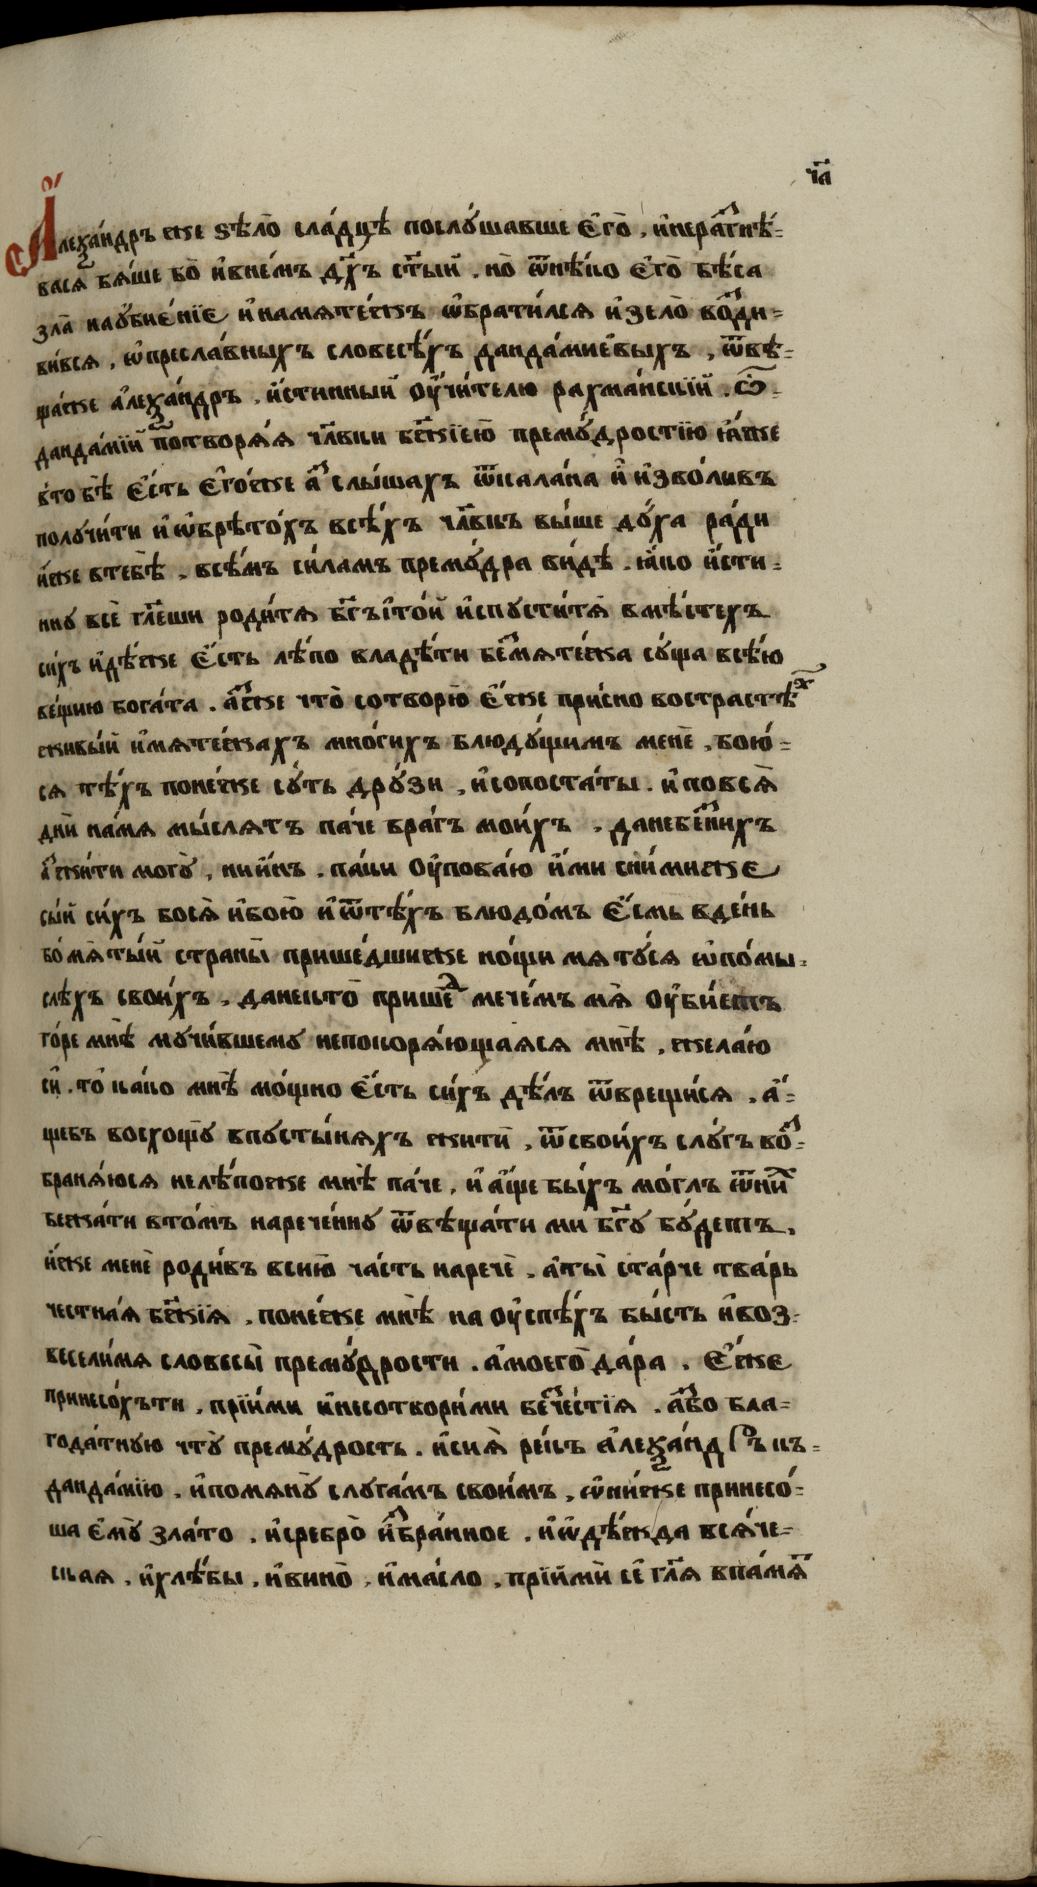 ч҃а
Алеѯа́ндръ же ѕѣло̀ сла́дцѣ послꙋ́шавше є҆го̀, и҆неразгнѣ́-
васѧ бѧ́ше бо̀ и҆внє́мъ дх҃ъ ст҃ы́й. но̀ ѿнѣ́ко є҆го̀ бѣ́са
зла̀ наᲂу҆бие́нїе и҆намѧте́жъ ѡ҆брати́лсѧ и҆зело̀ води-
ви́всѧ, ѡ҆пресла́вныхъ словесѣ́хъ данда́мие́выхъ, ѿвѣ-
ща́же а҆леѯа́ндръ, и҆́стинный ᲂу҆чи́телю рахма́нскїй. ѽ
данда́мїй потворѧ́ѧ чл҃вки бж҃їею премꙋ́дростїю ꙗ҆́же
кто̀ бѣ̀ є҆́сть є҆го́же а҆зъ слы́шахъ ѿкала́на и҆ и҆зво́ливъ
полꙋчи́ти и҆ѡ҆брѣто́хъ всѣ́хъ чл҃вкъ вы́ше дꙋ́ха ра́ди
и҆́же втебѣ̀, всѣ́мъ си́ламъ премꙋ́дра ви́дѣ. ꙗ҆́ко и҆́сти-
ннꙋ всѐ гл҃еши роди́тѧ бг҃ъ і҆то́й и҆спꙋсти́тѧ вмѣ́стехъ
си́хъ и҆дѣ́же є҆́сть лѣ́по владѣ́ти безмѧте́жа сꙋ́ща всѣ́ю
ве́щию бога́та. а҆зже что̀ сотворю̀ є҆́же при́сно вострастѣх
живы́й и҆мѧте́жахъ мно́гихъ блюдꙋ́щимъ менѐ, бою́-
сѧ тѣ́хъ поне́же сꙋ́ть дрꙋ́зи, и҆сопоста́ты. и҆повсѧ̀
дни̑ на́мѧ мы́слѧтъ па́че вра́гъ мои́хъ, данебезни́хъ
а҆зжи́ти могꙋ̀, нии҆́нъ. па́ки ᲂу҆пова́ю и҆́ми сни́миже
сы́й си́хъ босѧ̀ и҆бою̀ и҆ѿтѣ́хъ блюдо́мъ є҆́смь вде́нь
бо́мѧты́й страны̀ прише́дшиже но́щи мѧтꙋ́сѧ ѡ҆по́мы-
слѣхъ свои́хъ, данекто̀ прише́д мече́мъ мѧ̀ ᲂу҆бие́тъ
го́ре мнѣ̀ мꙋчи́вшемꙋ непокорѧ́ющаѧсѧ мнѣ̀, жела́ю
си̑. то̀ ка́ко мнѣ̀ мо́щно є҆́сть си́хъ дѣ́лъ ѿврещи́сѧ, а҆́-
щебъ восхощꙋ̀ впꙋсты́нѧхъ жи́ти, ѿсвои́хъ слꙋ́гъ воз-
бранѧ́юсѧ нелѣ́поже мнѣ̀ па́че, и҆ а҆́ще бы́хъ мо́глъ ѿни́х
бежа́ти вто́мъ нарече́ннꙋ ѿвѣща́ти ми бг҃ꙋ бꙋ́детъ,
и҆́же менѐ роди́въ всию̀ ча́сть наречѐ, а҆ты̀ ста́рче тва́рь
честна́ѧ бж҃їѧ, поне́же мнѣ̀ на ᲂу҆спѣ́хъ бы́сть и҆воз-
весели́мѧ словесы̀ премꙋ́дрости. а҆моего̀ да́ра. є҆́же
принесо́хъти, прїи́ми и҆несотвори́ми безче́стїѧ. а҆збо бла-
года́тнꙋю чтꙋ̀ премꙋ́дрость. и҆сиѧ̀ ре́къ а҆леѯа́ндръ къ-
данда́мїю. и҆помѧнꙋ̀ слꙋга́мъ свои́мъ, ѡ҆ни́же принесо́-
ша є҆мꙋ̀ зла́то, и҆сребро̀ и҆збра́нное. и҆ѡ҆дѣ́жда всѧ́че-
скаѧ, и҆хлѣ́бы, и҆вино̀, и҆ма́сло, прїими̑ сѐ гл҃ѧ впа́мѧт